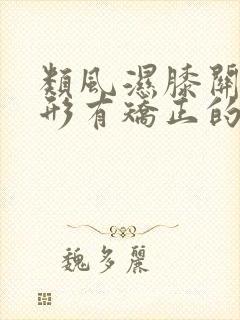 類風濕膝關
形有矯正的
魏多麗